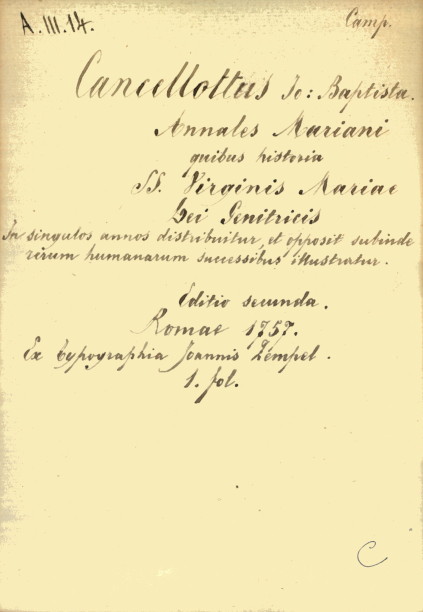 A.III.14.
Camp.
Cancellottus Jo: Baptista.
Annales Mariani
quibus historia
SS. Virginis Mariae
Dei Genitricis
In singulos annos distribuitur, et opposit subinde
rerum humanarum successibus illustratur.
Editio secunda.
Romae 1757.
Ex typographia Joannis Zempel.
1. fol.
C